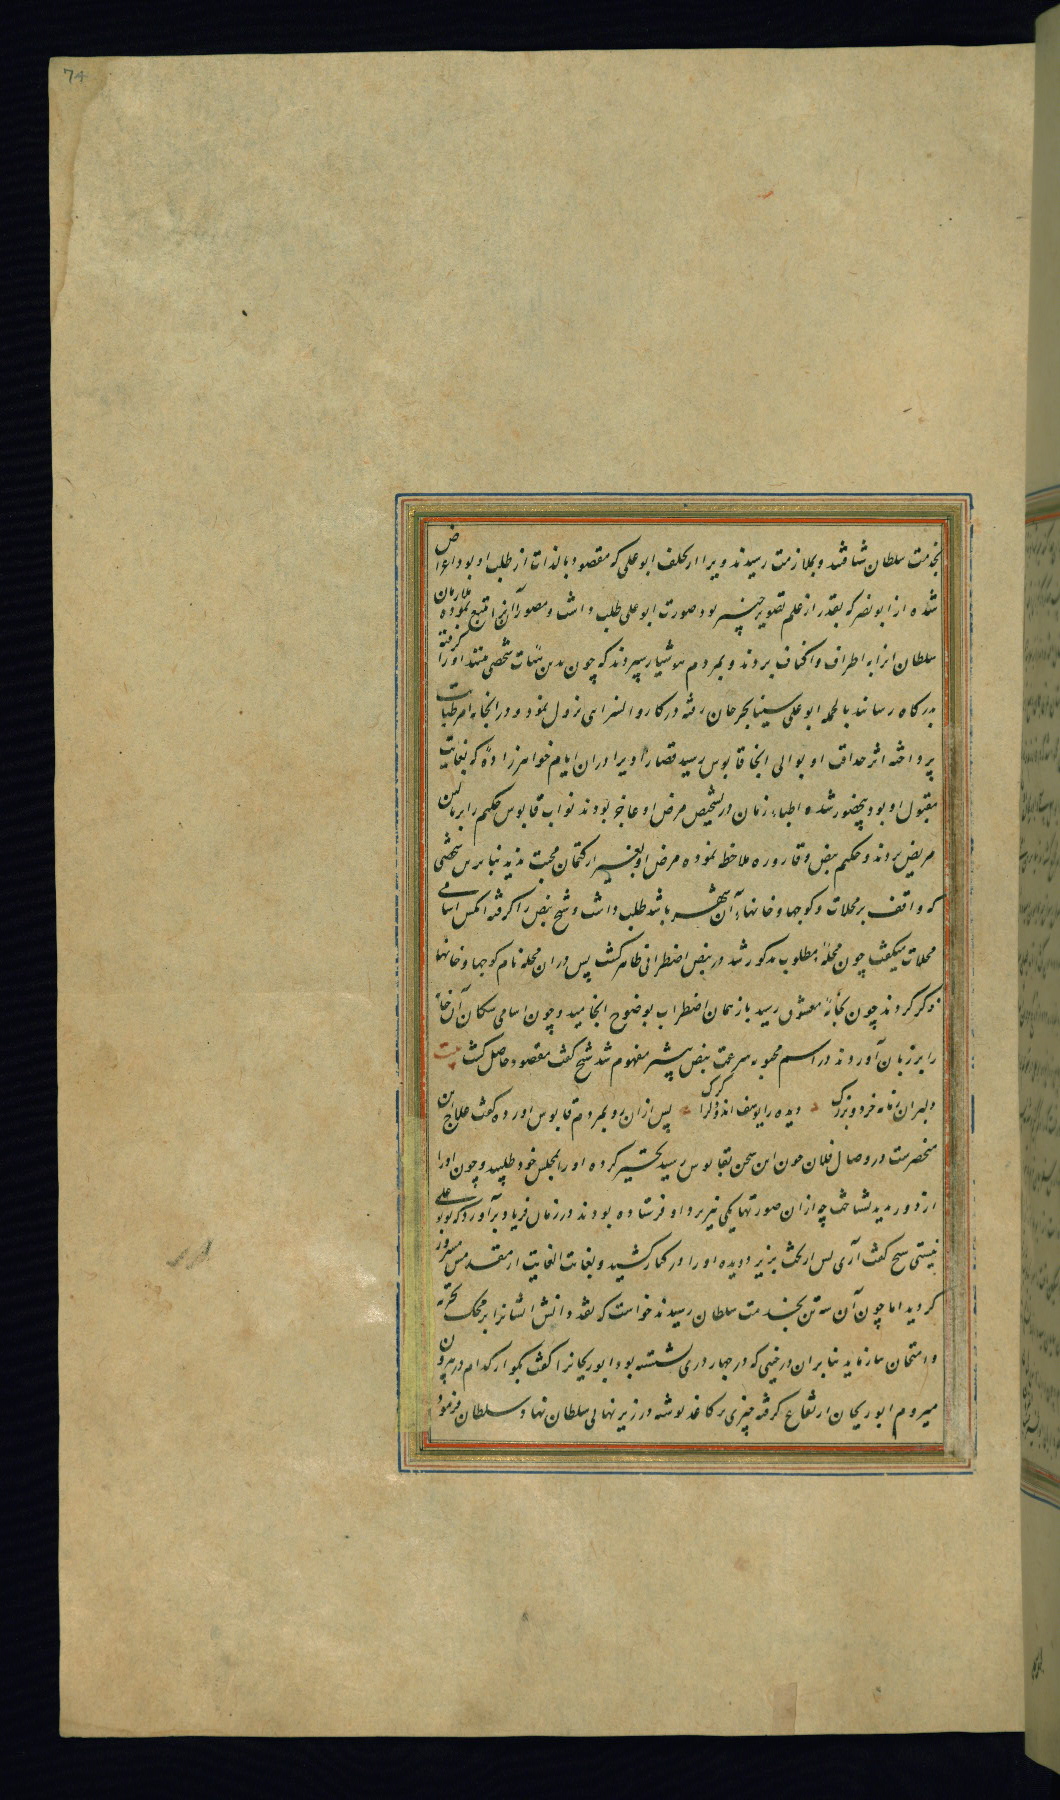 74
بخدمت سلطان شتافتند و بملازمت رسیدند و یرا از تخلف ابوعلی که مقصود بالذات از طلب او بود اعراض
شده از ابونصر که بقدر از علم تصویر خبیر بود صورت ابوعلی طلب داشت و مصوران تتبع نموده ملازمان
سلطان انرا به اطراف و اکناف بردند و بمردم هوشیار سپردند که چون بدین شمات شخصی بینند او را گرفته
بدرکاه رسانند بالجمله ابوعلی سینا بجرجان رفته در کاروانسرای نزول نمود و در انجا بامر طبابت
پرداخته اثر حذاقت او بوالی انجا قابوس رسید قضا را ویرا دران ایام خواهرزاده که بغایت
مقبول او بود رنجور شده اطباء زمان در تشخیص مرض او عاجز بودند نواب قابوس حکیم را بر بالین
مریض بردند و حکیم نبض و قاروره ملاحظ نموده مرض او بغیر از کتمان محبت ندید بنابرین شخصی
که واقف بر محلات و کوچها و خانهاء آن شهر باشد طلب داشت و شیخ نبض را گرفته انکس اسامی
محلات میکفت چون محله مطلوب مذکور شد در نبض اضطرابی ظاهر کشت پس دران محله نام کوچها و خانها
ذکر کردند چون بخانه معشوق رسید باز همان اضطراب بوضوح انجامید و چون اسامی سکان آن خانه
را بر زبان آوردند در اسم محبوبه سرعت نبض بیشتر مفهوم شد شیخ کفت مقصود حاصل کشت بیت
دلبران زمانه خرد و بزرک دیده را یوسف اند و دل را کرک پس ازان رو بمردم قابوس اورده کفت علاج این
منحصرست در وصال فلان چون این سخن بقابوس رسید تحیر کرده او را بمجلس خود طلبید و چون او را
از دور بدید بشناخت چه ازان صورتها یکی نیز برد او فرستاده بودند در زمان فریاد برآورد که تو بوعلی
نیستی شیخ کفت آری پس از تخت بزیر دویده او را در کنار کشید و بغایت الغایت از مقدمش مسرور
کردید اما چون آن سه تن بخدمت سلطان رسیدند خواست که نقد دانش ایشانرا بر محک تجربه
و امتحان بیازماید بنابران در حینی که در چهار دری نشسته بود ابوریحانرا کفت بکو از کدام در بیرون
میروم ابوریحان ارتفاع کرفته چیزی بر کاغذ نوشته در زیر نهالی سلطان نهاد و سلطان فرمود